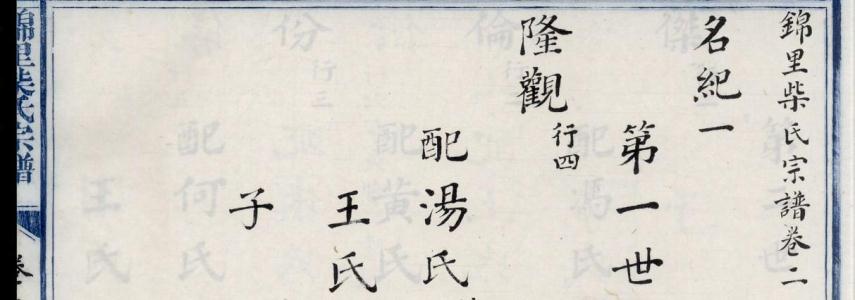 錦里柴氏宗譜卷二
名紀一
第一世
隆觀 行四
配湯氏
王氏
子
錦里柴氏宗譜